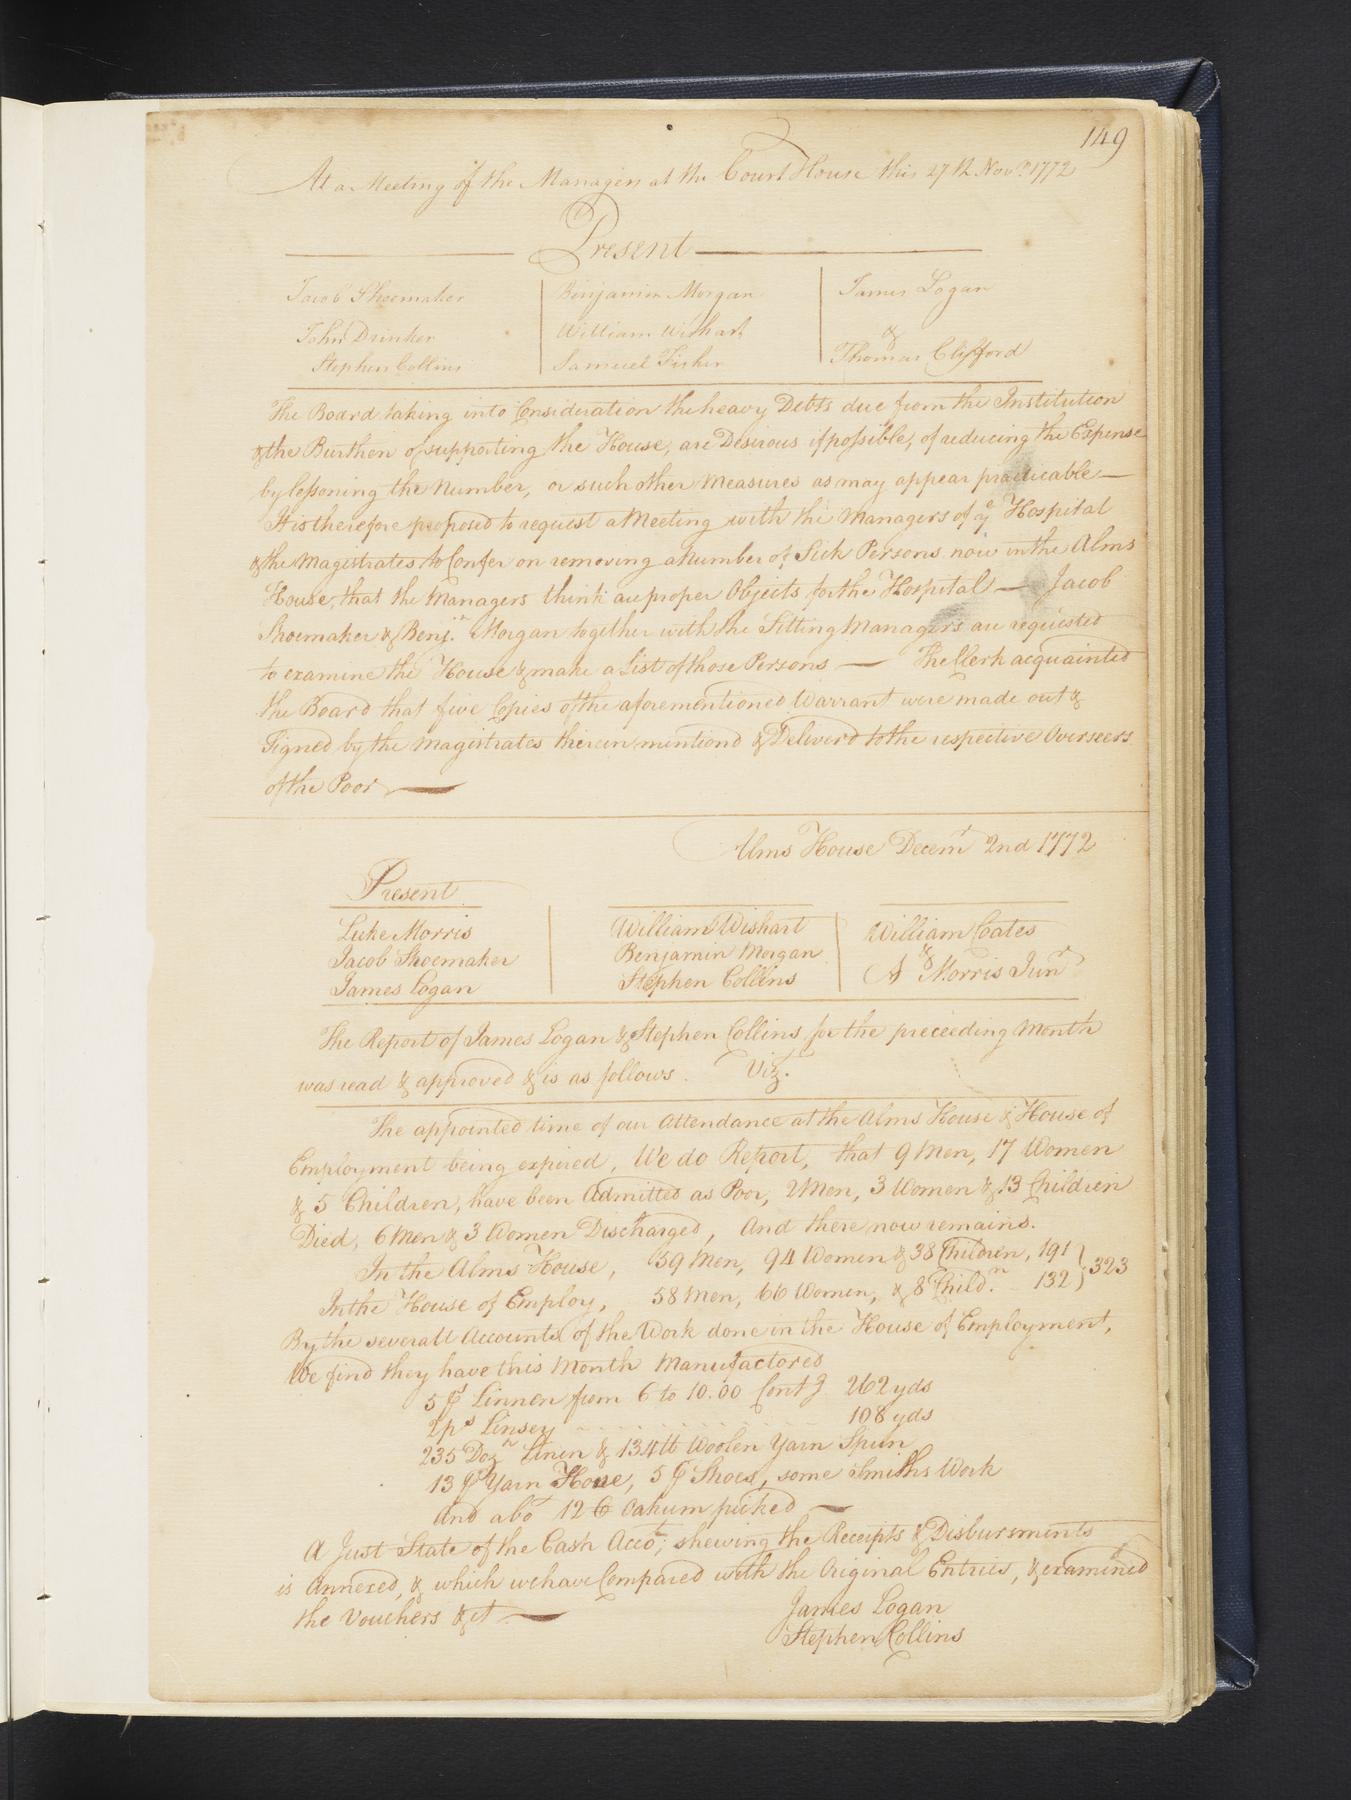 149
At a Meeting of the Managers at the Court House this 27th Novr. 1772
Present
Jacob Shoemaker
John Drinker
Stephen Collins
Benjamin Morgan
William Wishart
Samuel Fisher
James Logan
&
Thomas Clifford
The Board taking into Consideration the heavy Debts due from the Institution
& the Burthen of supporting the House, are Desirous if possible, of reducing the Expense
by lessoning the Number, or such other Measures as may appear practicable —
It is therefore proposed to request a Meeting with the Managers of ye Hospital
& the Magistrates to Confer on removing a Number of Sick Persons now in the Alms
House, that the Managers think are proper Objects for the Hospital — Jacob
Shoemaker & Benjn. Morgan together with the Sitting Managers are requested
to examine the House & make a List of those Persons — The Clerk acquainted
the Board that five Copies of the aforementioned Warrant were made out &
Signed by the Magistrates therein mentiond & Deliverd to the respective Overseers
of the Poor —
Alms House Decemr 2nd 1772
Present
Luke Morris
Jacob Shoemaker
James Logan
William Wishart
Benjamin Morgan
Stephen Collins
William Coates
&
A Morris Junr
The Report of James Logan & Stephen Collins for the preceeding Month
was read & approved & is as follows. Viz.
The appointed time of our Attendance at the Alms House & House of
Employment being expired, We do Report, that 9 Men, 17 Women
& 5 Children, have been Admitted as Poor, 2 Men, 3 Women & 13 Children
Died, 6 Men & 3 Women Discharged, And there now remains.
In the Alms House, 59 Men, 94 Women & 38 Children, 191 } 323
In the House of Employ, 58 Men, 66 Women, & 8 Childn. 132
By the severall Accounts of the Work done in the House of Employment,
We find they have this Month Manufactored
5 ps Linnen from 6 to 10.00 Contg 262 yds
2 ps Linsey 108 yds
235 Dozn Linen & 134 lb Woolen Yarn Spun
13 pr Yarn Hose, 5 pr Shoes, some Smiths Work
And abo 12 C Oakum picked —
A Just State of the Cash Accot; shewing the Receipts & Disbursments
is Annexed, & which we have Compared with the Original Entries, & examined
the Vouchers &ct —
James Logan
Stephen Collins